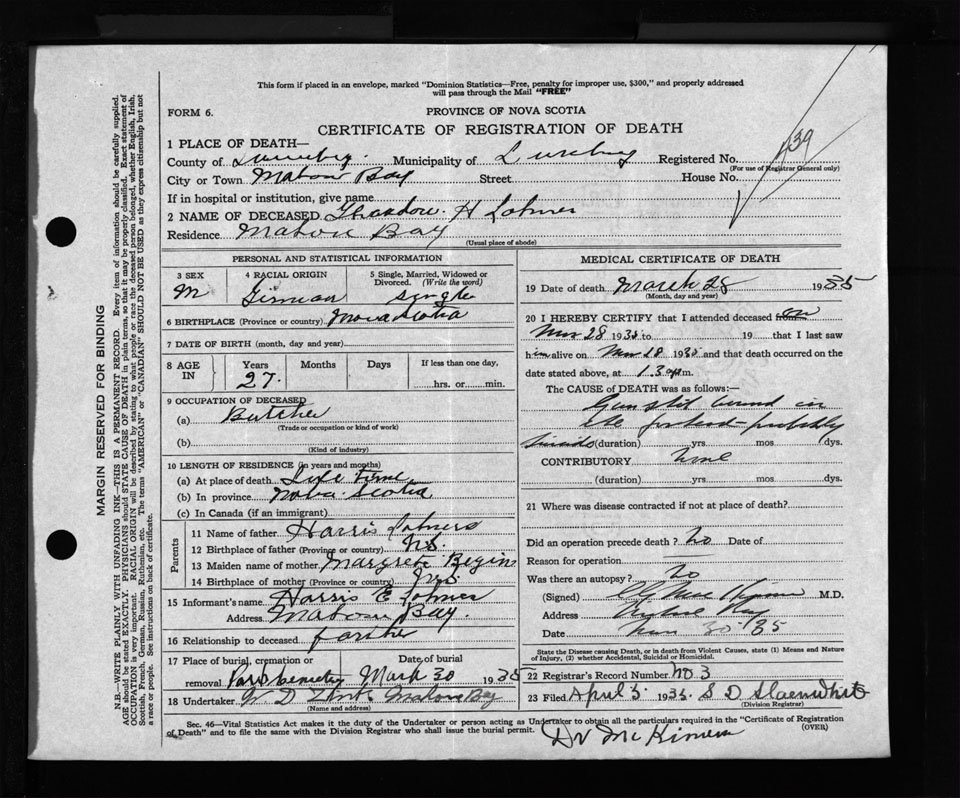 This form if placed in an envelope, marked "Dominion Statistics—Free, penalty for improper use, $300," and properly addressed
will pass through the Mail "FREE"
FORM 6.
PROVINCE OF NOVA SCOTIA
CERTIFICATE OF REGISTRATION OF DEATH
1 PLACE OF DEATH—
County of Municipality of Registered No. 139
(For use of Registrar General only)
City or Town Mahone Bay Street House No.
If in hospital or institution, give name
2 NAME OF DECEASED H
Residence Bay
(Usual place of abode)
PERSONAL AND STATISTICAL INFORMATION
3 SEX M
4 RACIAL ORIGIN German
5 Single, Married, Widowed or Divorced. (Write the word) Single
6 BIRTHPLACE (Province or country) Nova Scotia
7 DATE OF BIRTH (month, day and year)
8 AGE IN Years 27 Months Days If less than one day, hrs. or min.
9 OCCUPATION OF DECEASED
(a) Butcher
(Trade or occupation or kind of work)
(b)
(Kind of industry)
10 LENGTH OF RESIDENCE (in years and months)
(a) At place of death Life Time
(b) In province Nova Scotia
(c) In Canada (if an immigrant)
Parents
11 Name of father Harris
12 Birthplace of father (Province or country) N.S.
13 Maiden name of mother Margrete
14 Birthplace of mother (Province or country) N.S.
15 Informant's name Harris E
Address Bay.
16 Relationship to deceased
17 Place of burial, cremation or removal Cemetery
Date of burial March 30 1935
18 Undertaker W D Bay
(Name and address)
MEDICAL CERTIFICATE OF DEATH
19 Date of death March 28 1935
(Month, day and year)
20 I HEREBY CERTIFY that I attended deceased from on
Mar 28 1935 to 19 that I last saw
him alive on Mar 28 1935 and that death occurred on the
date stated above, at m.
The CAUSE of DEATH was as follows:—
Gun shot wound in
the forehead probably
(duration) yrs. mos. dys.
CONTRIBUTORY None
(duration) yrs. mos. dys.
21 Where was disease contracted if not at place of death?
Did an operation precede death? No Date of
Reason for operation
Was there an autopsy? No
(Signed) M.D.
Address
Date Mar 30 35
State the Disease causing Death, or in death from Violent Causes, state (1) Means and Nature
of Injury, (2) whether Accidental, Suicidal or Homicidal.
22 Registrar's Record Number No 3
23 Filed April 3. 1935 S D
(Division Registrar)
Sec. 46—Vital Statistics Act makes it the duty of the Undertaker or person acting as Undertaker to obtain all the particulars required in the "Certificate of Registration
of Death" and to file the same with the Division Registrar who shall issue the burial permit. (OVER)
Dr
MARGIN RESERVED FOR BINDING
N.B.—WRITE PLAINLY WITH UNFADING INK—THIS IS A PERMANENT RECORD. Every item of information should be carefully supplied.
AGE should be stated EXACTLY. PHYSICIANS should STATE CAUSE OF DEATH in plain terms, so that it may be properly classified. Exact statement of
OCCUPATION is very important. RACIAL ORIGIN will be described by stating to what people or race the deceased person belonged, whether English, Irish,
Scottish, French, German, Russian, Ruthenian, etc. The terms "AMERICAN" or "CANADIAN" SHOULD NOT BE USED as they express citizenship but not
a race or people. See instructions on back of certificate.